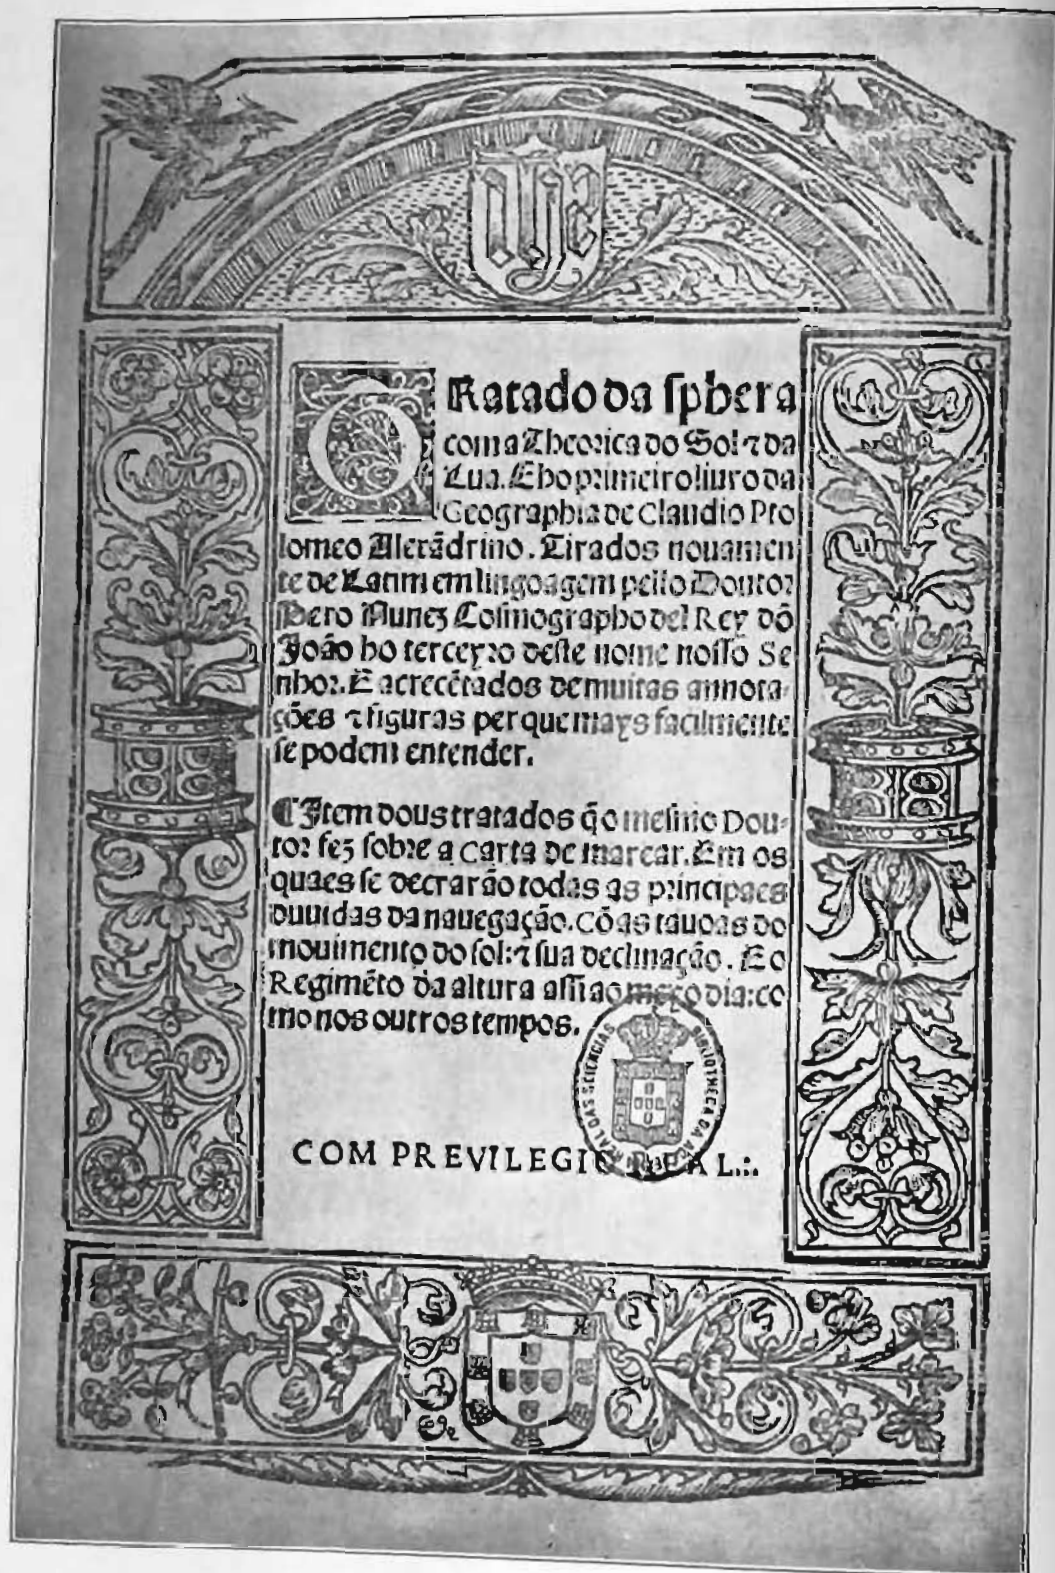 TRatado da sphera
com a Theorica do Sol ⁊ da
Lua. E ho primeiro liuro da
Geographia de Claudio Pto
lomeo Alexãdrino. Tirados nouamen
te de Latim em lingoagem pello Doutor
Pero Nunez Cosmographo del Rey dõ
João ho terceyro deste nome nosso Se
nhor. E acrecẽtados de muitas annota-
ções ⁊ figuras per que mays facilmente
se podem entender.
¶ Item dous tratados q̃ o mesmo Dou-
tor fez sobre a carta de marear. Em os
quaes se decrarão todas as principaes
duuidas da nauegação. Cõ as tauoas do
mouimento do sol: ⁊ sua declinação. E o
Regimẽto da altura assi ao meyo dia: co
mo nos outros tempos.
BIBLIOTHECA DA ACAD. REAL DAS SCIENCIAS
COM PREVILEGIO REAL.:.